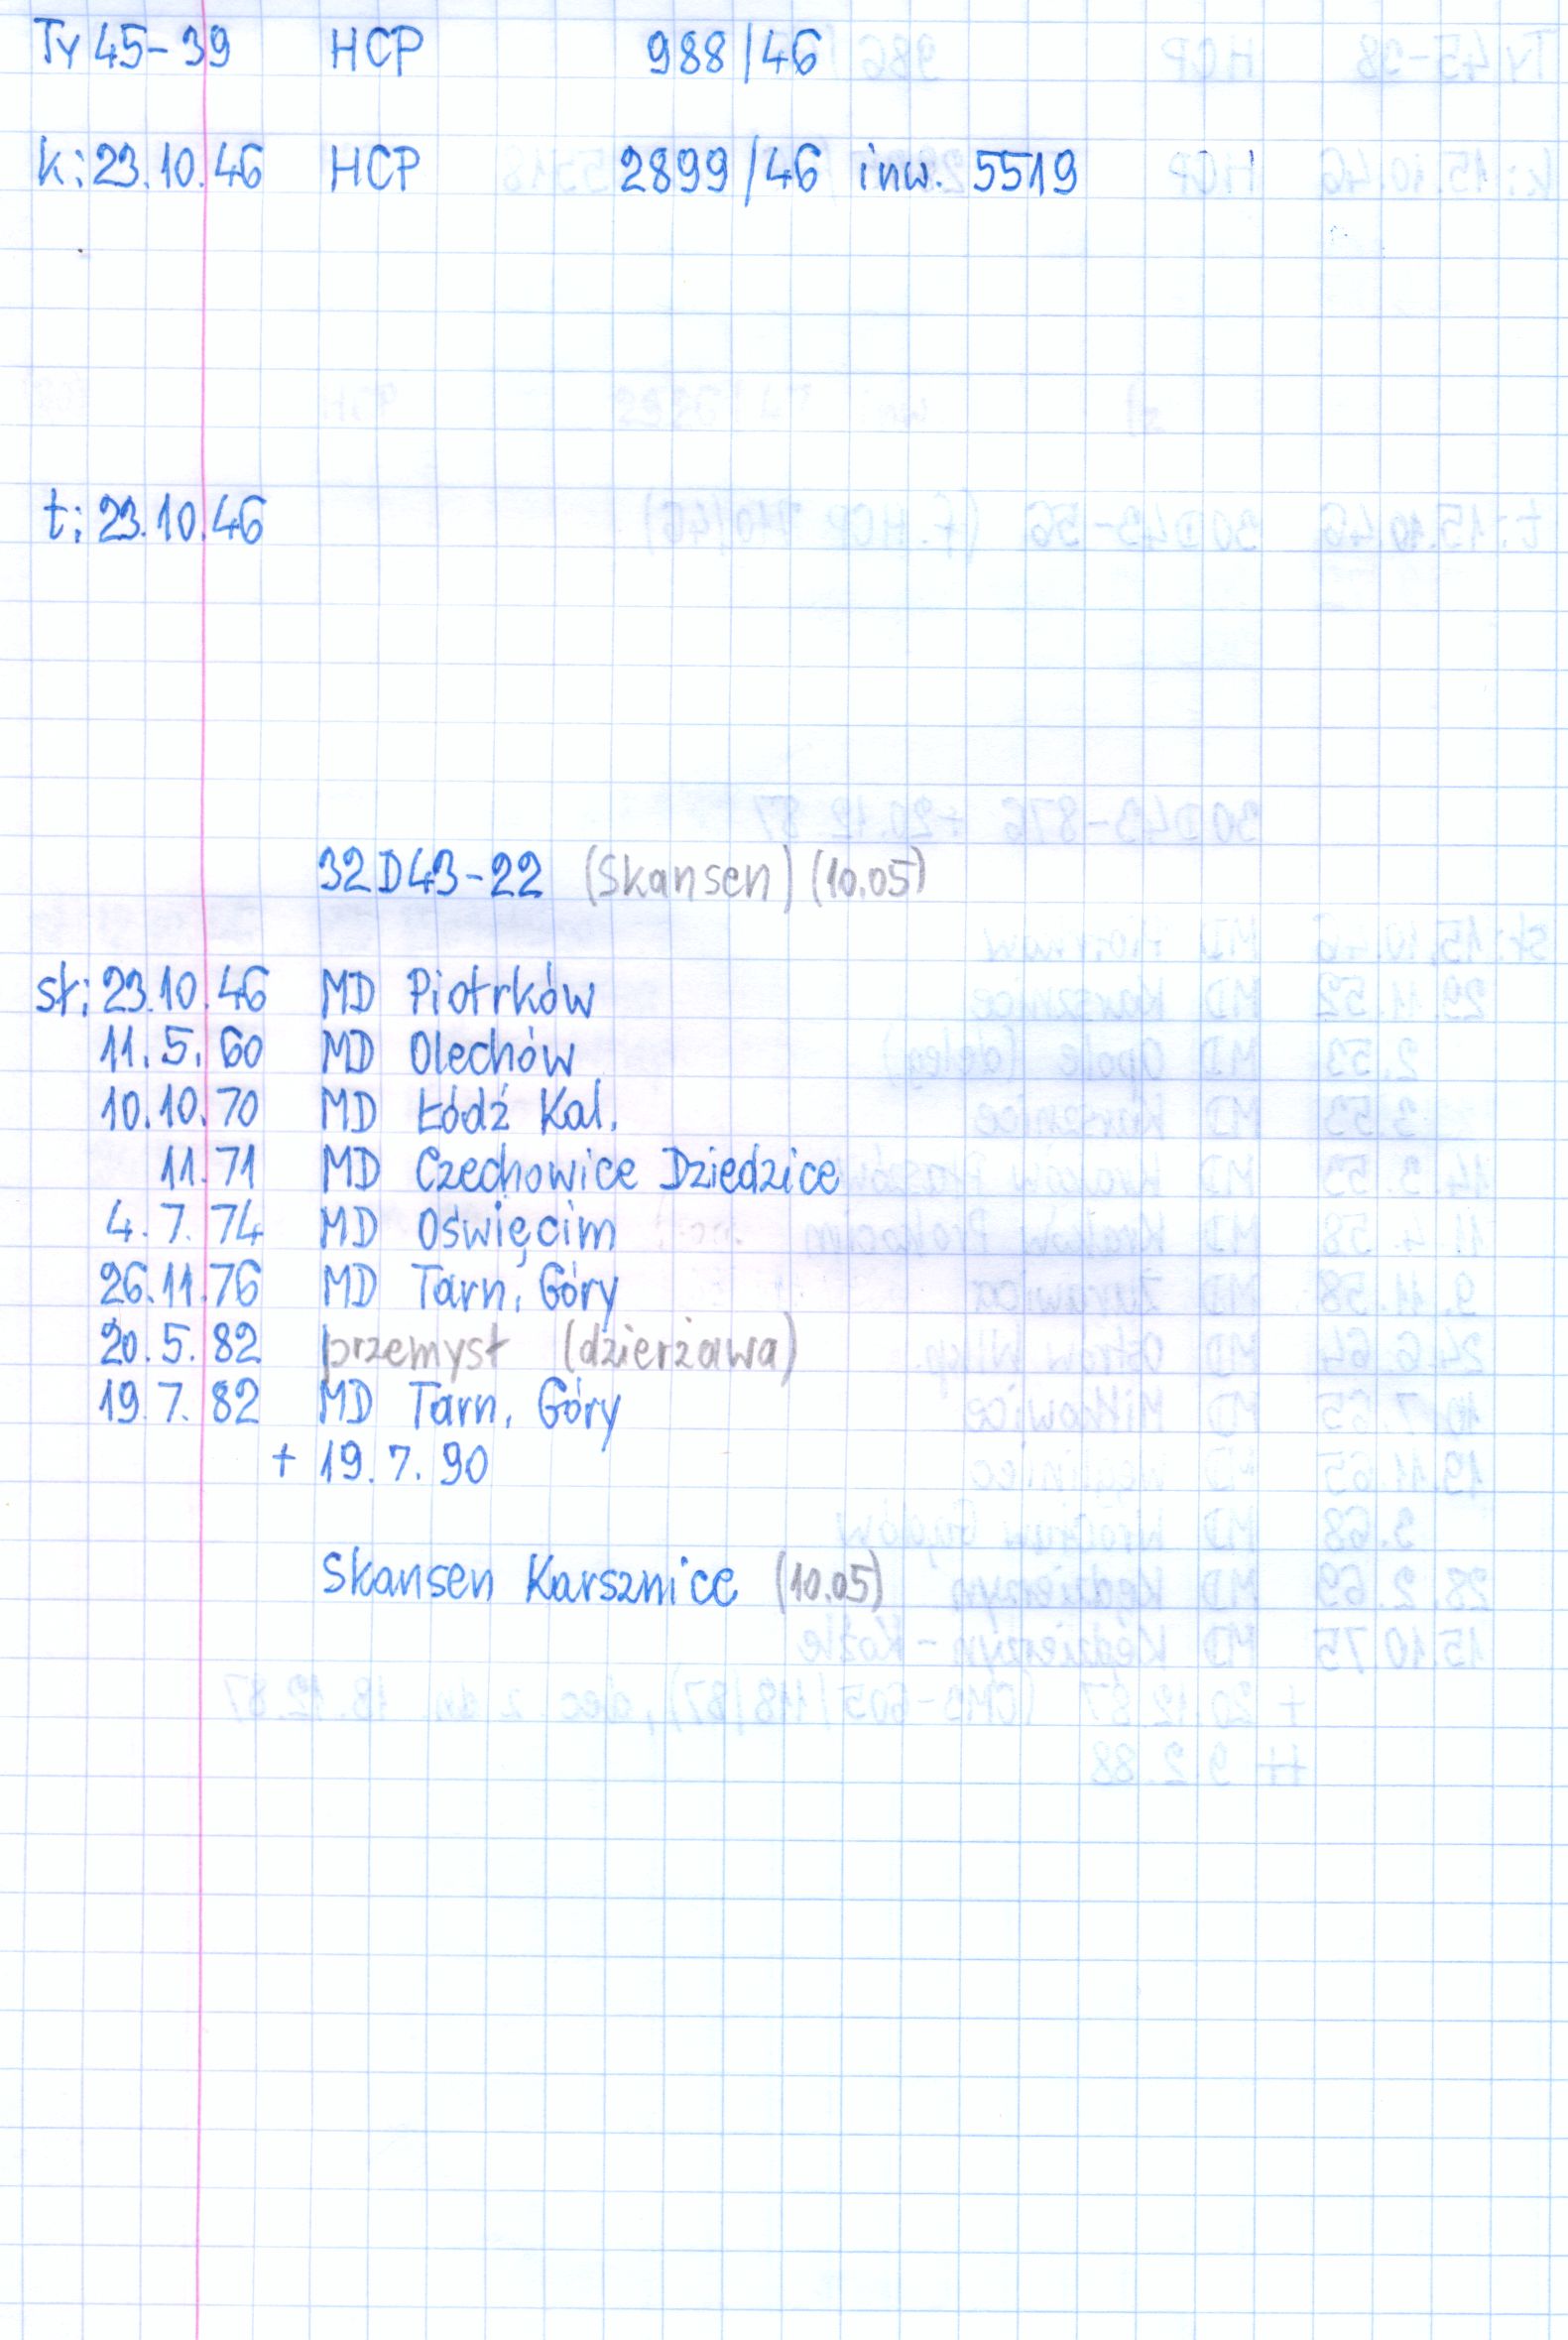 Ty45-39 HCP 988/46
k: 23.10.46 HCP 2899/46 inw. 5519
t: 23.10.46
32D43-22 (Skansen) (10.05)
st: 23.10.46 MD Piotrków
11.5.60 MD Olechów
10.10.70 MD Łódź Kal.
11.71 MD Czechowice Dziedzice
4.7.74 MD Oświęcim
26.11.76 MD Tarn. Góry
20.5.82 przemysł (dzierżawa)
19.7.82 MD Tarn. Góry
+ 19.7.90
Skansen Karsznice (10.05)